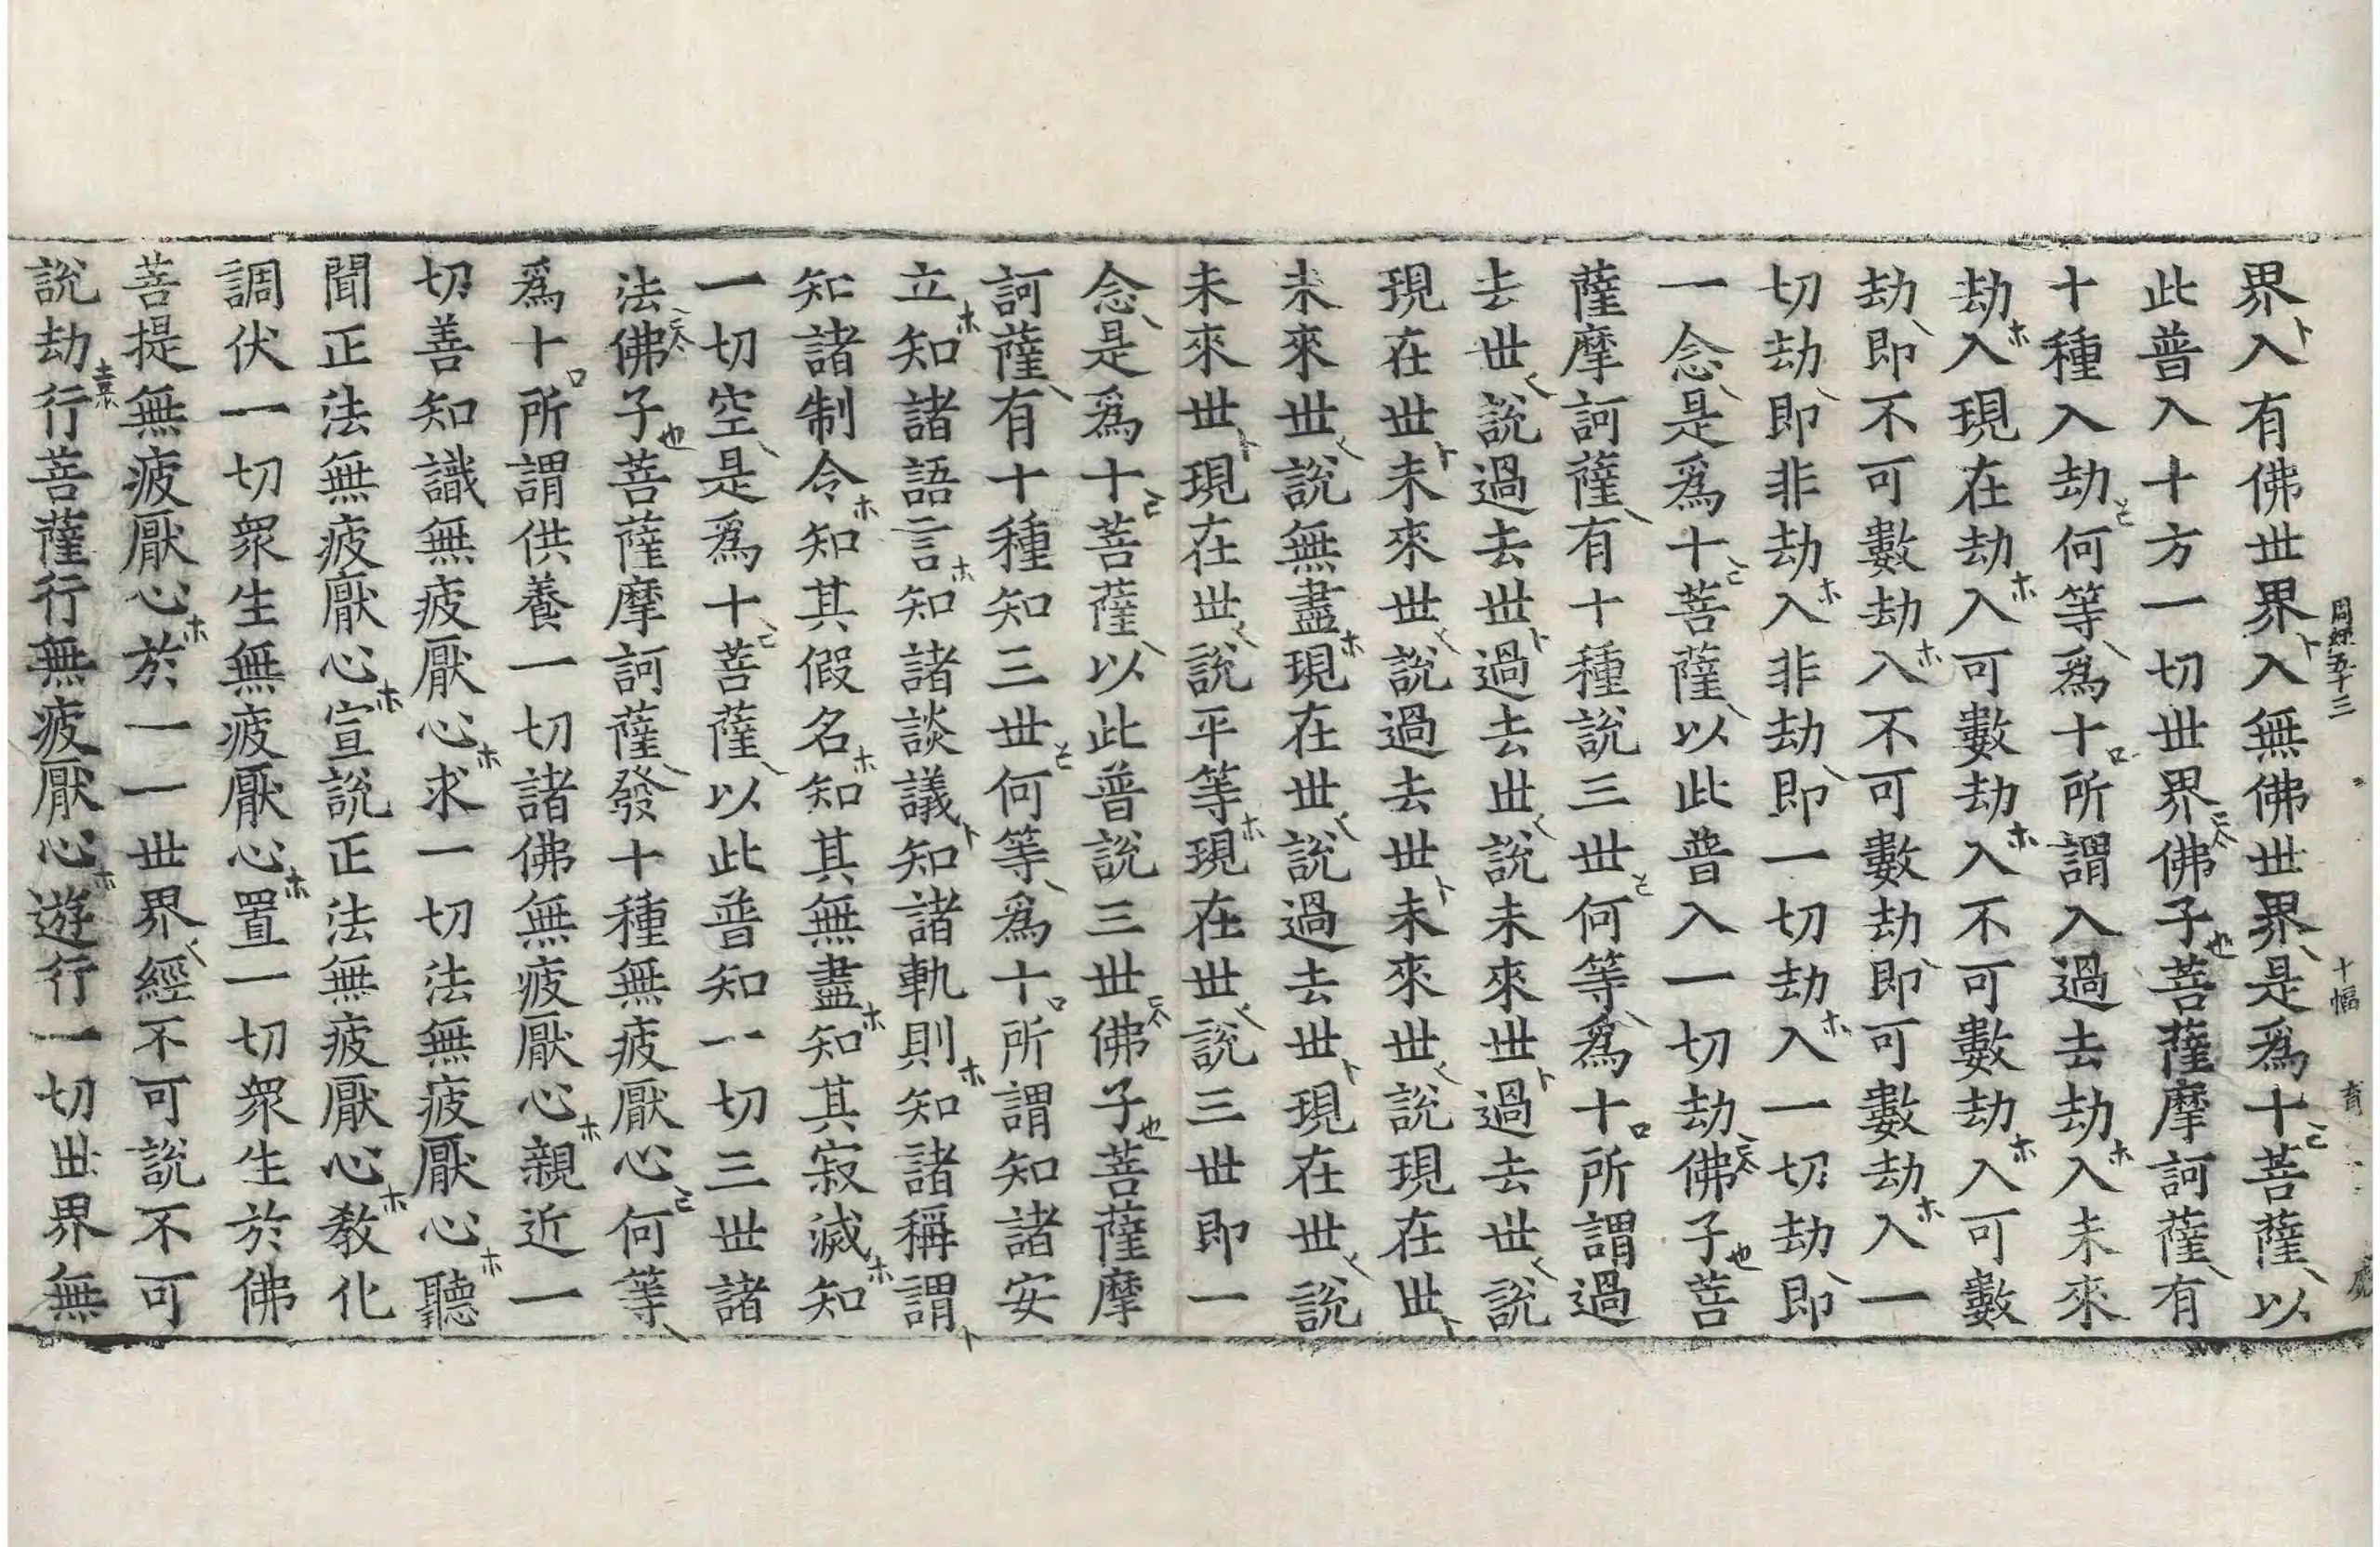 周經五十三 十幅 育
界入有佛世界入無佛世界是爲十菩薩以
此普入十方一切世界佛子菩薩摩訶薩有
十種入劫何等爲十所謂入過去劫入未來
劫入現在劫入可數劫入不可數劫入可數
劫即不可數劫入不可數劫即可數劫入一
切劫即非劫入非劫即一切劫入一切劫即
一念是爲十菩薩以此普入一切劫佛子菩
薩摩訶薩有十種說三世何等爲十所謂過
去世說過去世過去世說未來世過去世說
現在世未來世說過去世未來世說現在世
未來世說無盡現在世說過去世現在世說
未來世現在世說平等現在世說三世即一
念是爲十菩薩以此普說三世佛子菩薩摩
訶薩有十種知三世何等爲十所謂知諸安
立知諸語言知諸談議知諸軌則知諸稱謂
知諸制令知其假名知其無盡知其寂滅知
一切空是爲十菩薩以此普知一切三世諸
法佛子菩薩摩訶薩發十種無疲厭心何等
爲十所謂供養一切諸佛無疲厭心親近一
切善知識無疲厭心求一切法無疲厭心聽
聞正法無疲厭心宣說正法無疲厭心教化
調伏一切衆生無疲厭心置一切衆生於佛
菩提無疲厭心於一一世界經不可說不可
說劫行菩薩行無疲厭心遊行一切世界無